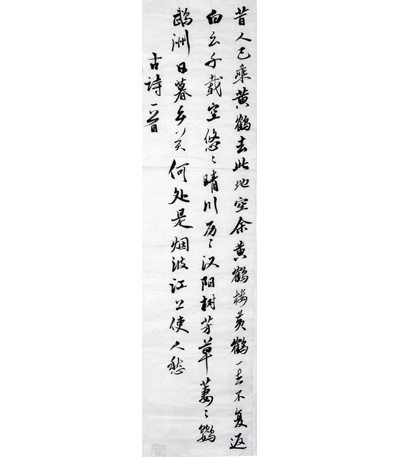 昔人已乘黄鶴去此地空余黄鶴楼黄鶴一去不复返
白云千载空悠〻晴川历〻汉阳树芳草萋〻鹦
鹉洲日暮乡关何处是烟波江上使人愁
古诗一首